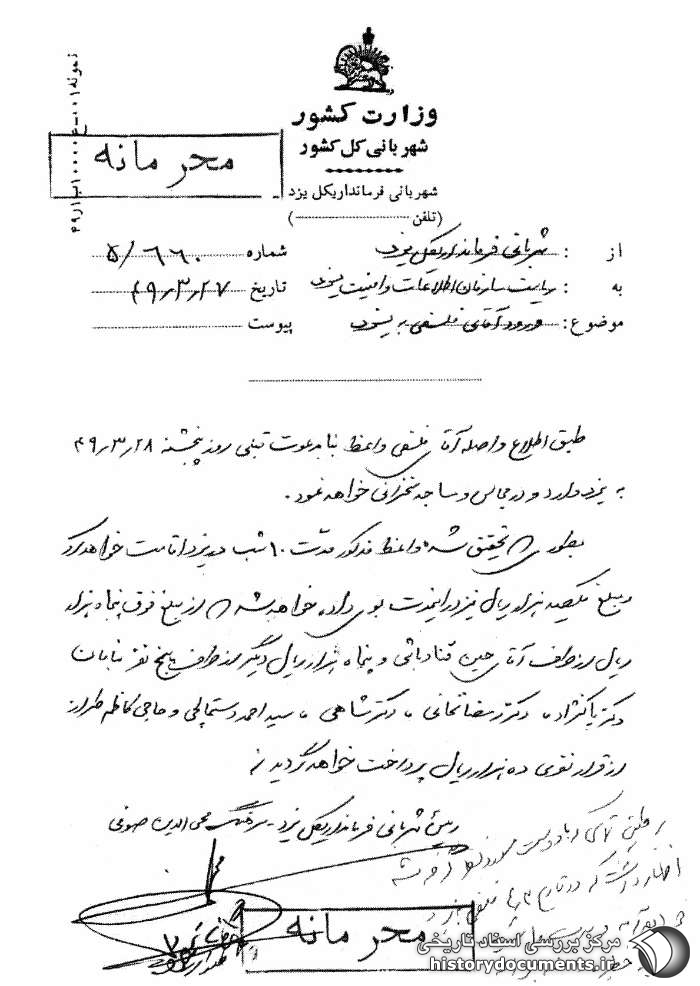 وزارت کشور
شهربانی کل کشور
شهربانی فرمانداریکل یزد
(تلفن)
محرمانه
از : شهربانی فرمانداریکل یزد
شماره ۵/۶۶۰
به : ریاست سازمان اطلاعات و امنیت یزد
تاریخ ۴۹٫۳٫۲۷
موضوع: ورود آقای فلسفی به یزد
پیوست
طبق اطلاع واصله آقای فلسفی واعظ بنا بدعوت قبلی روز پنجشنبه ۴۹٫۳٫۲۸
به یزد وارد و در مجالس و مساجد سخنرانی خواهد نمود.
بطوری که تحقیق شده واعظ مذکور مدت ۱۰ شب در یزد اقامت خواهد کرد
و مبلغ یکصد هزار ریال نیز در اینمدت بوی داده خواهد شد که از مبلغ فوق پنجاه هزار
ریال از طرف آقای حسین قنادباشی و پنجاه هزار ریال دیگر از طرف پنج نفر بنامان
دکتر پاکنژاد، دکتر رمضانخانی، دکتر شاهی، سید احمد دستمالچی و حاجی کاظم طراز
از قرار نفری ده هزار ریال پرداخت خواهد گردید
رئیس شهربانی فرمانداریکل یزد - سرهنگ محی الدین صوفی
محرمانه
مرکز بررسی اسناد تاریخی
historydocuments.ir